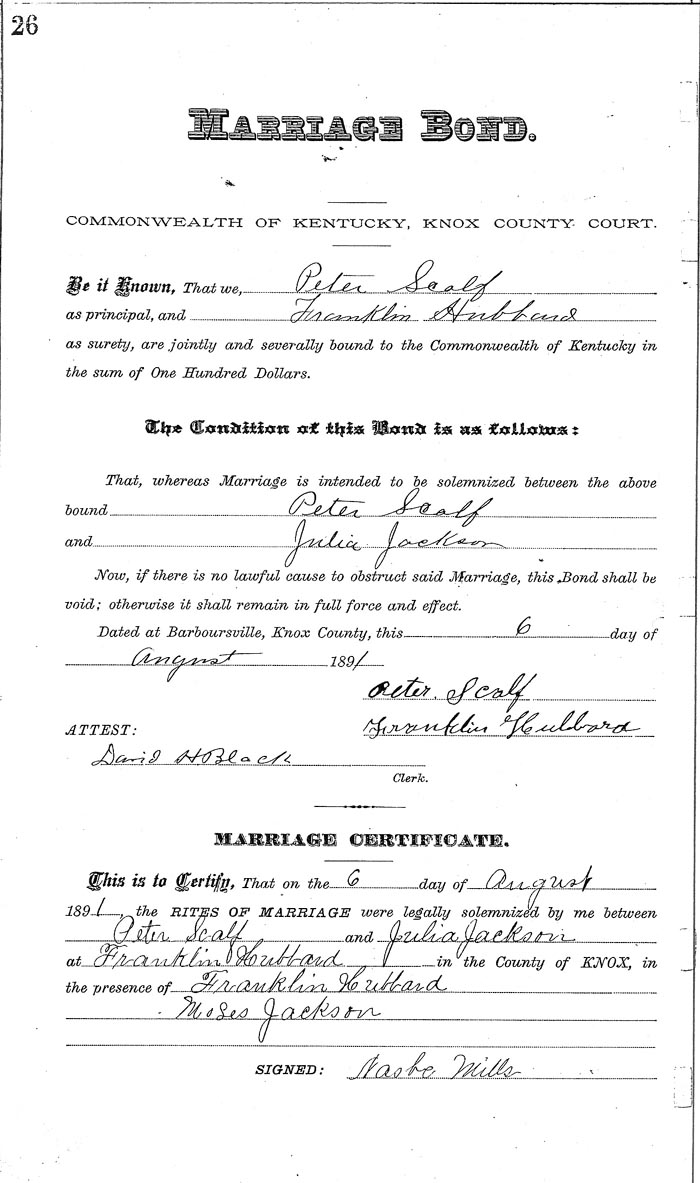 26
MARRIAGE BOND.
COMMONWEALTH OF KENTUCKY, KNOX COUNTY COURT.
Be it Known, That we, Peter Scalf
as principal, and Franklin Hubbard
as surety, are jointly and severally bound to the Commonwealth of Kentucky in
the sum of One Hundred Dollars.
The Condition of this Bond is as follows:
That, whereas Marriage is intended to be solemnized between the above
bound Peter Scalf
and Julia Jackson
Now, if there is no lawful cause to obstruct said Marriage, this Bond shall be
void; otherwise it shall remain in full force and effect.
Dated at Barboursville, Knox County, this 6 day of
August 1891
Peter Scalf
ATTEST: Franklin Hubbard
David H Black
Clerk.
MARRIAGE CERTIFICATE.
This is to Certify, That on the 6 day of August
1891, the RITES OF MARRIAGE were legally solemnized by me between
Peter Scalf and Julia Jackson
at Franklin Hubbard in the County of KNOX, in
the presence of Franklin Hubbard
Moses Jackson
SIGNED: Mills